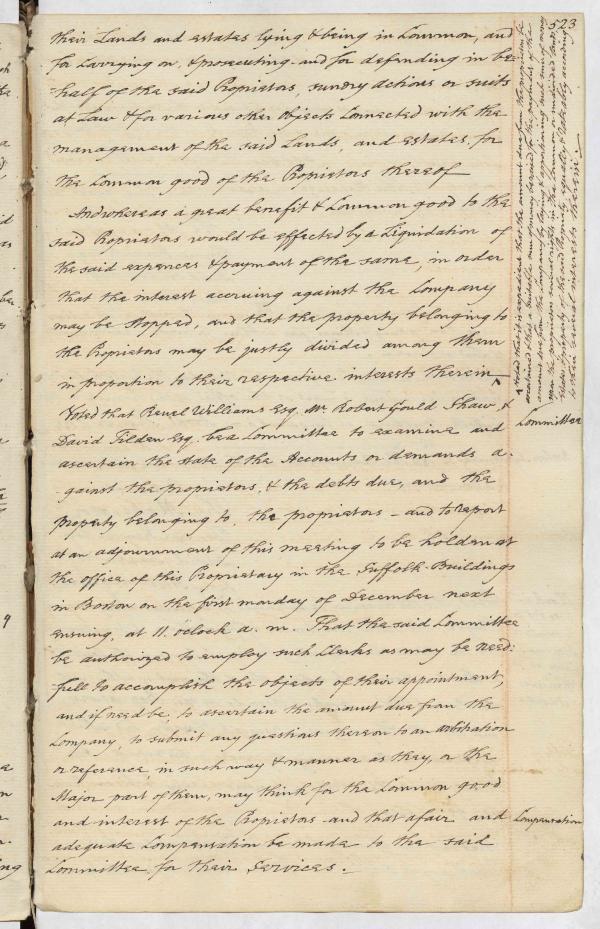 523
their Lands and estates lying & being in Common, and
for Carrying on, & prosecuting and for defending in be-
-half of the said Proprietors, sundry actions or suits
at Law & for various other objects Connected with the
management of the said Lands, and estates, for
the Common good of the Proprietors thereof
And whereas a great benefit & Common good to the
said Proprietors would be effected by a Liquidation of
the said expences & payment of the same, in order
that the interest accruing against the Company
may be stopped, and that the property belonging to
the Proprietors may be justly divided among them
in proportion to their respective interests therein ^
^ Voted that it is expedient that the amount due from the
ascertained & that a suitable sum of money
amount due from the Company by laying & apportioning such sum of money
upon the proprietors in the Common or undivided
of the said Company, equally & rateably according
to their several interests therein.
Voted that Reuel Williams Esq. Mr. Robert Gould Shaw, &
Committee
David Tilden Esq. be a Committee to examine and
ascertain the state of the Accounts or demands a-
-gainst the proprietors, & the debts due, and the
property belonging to, the proprietors - and to report
at an adjournment of this meeting to be holden at
the office of this Propriety in the Suffolk Buildings
in Boston on the first monday of December next
ensuing, at 11. o'clock a. m. That the said Committee
be authorized to employ such Clerks as may be need:
full to accomplish the objects of their appointment,
and if need be, to ascertain the amount due from the
Company, to submit any questions thereon to an arbitration
or reference, in such way & manner as they, or the
Major part of them, may think for the Common good
and interest of the Proprietors - and that a fair and
Compensation
adequate Compensation be made to the said
Committee, for their Services.